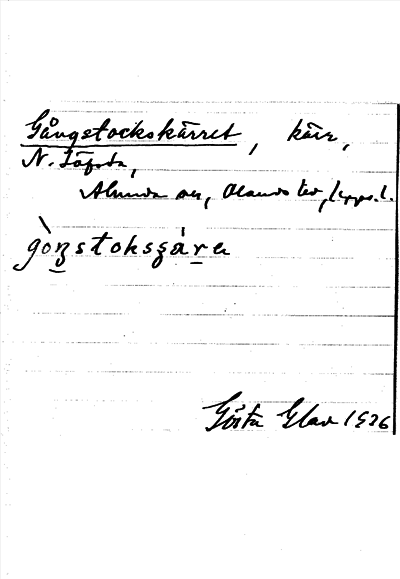 Gångstockskärret, kärr,
N. Löfsta,
Alunda sn, Olands hd, Upps. l.
gòŋstoksʒárɛ
Gösta Glav 1926